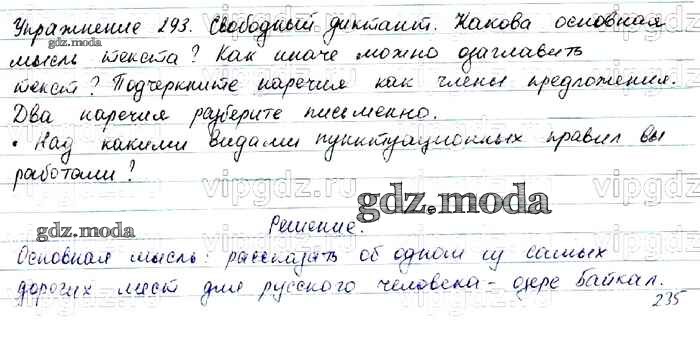 Упражнение 293. Свободный диктант. Какова основная
gdz.moda
мысль текста? Как иначе можно озаглавить
текст? Подчеркните наречия как члены предложения.
Два наречия разберите письменно.
• Над какими видами пунктуационных правил вы
работали?
vipgdz.ru
gdz.moda
Решение.
gdz.moda
Основная мысль: рассказать об одном из самых
дорогих мест для русского человека - озере Байкал.
235